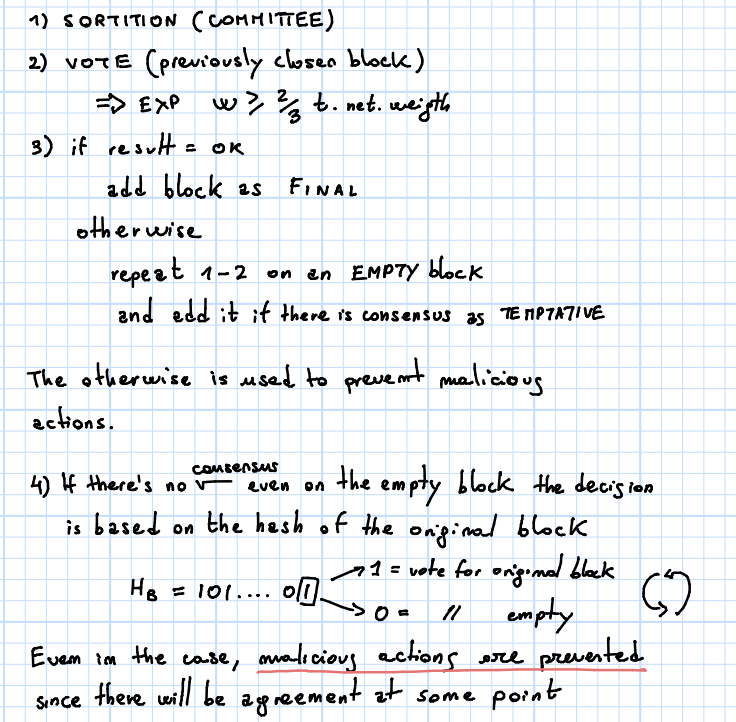 1) SORTITION (COMMITTEE)
2) VOTE (previously chosen block)
=> EXP w ≥ 2/3 t. net. weigth
3) if result = OK
add block as FINAL
otherwise
repeat 1-2 on an EMPTY block
and add it if there is consensus as TEMPTATIVE
The otherwise is used to prevent malicious
actions.
4) If there's no consensus even on the empty block the decision
is based on the hash of the original block
H_B = 101.... 01 → 1 = vote for original block
→ 0 = // empty
Even in the case, malicious actions are prevented
since there will be agreement at some point